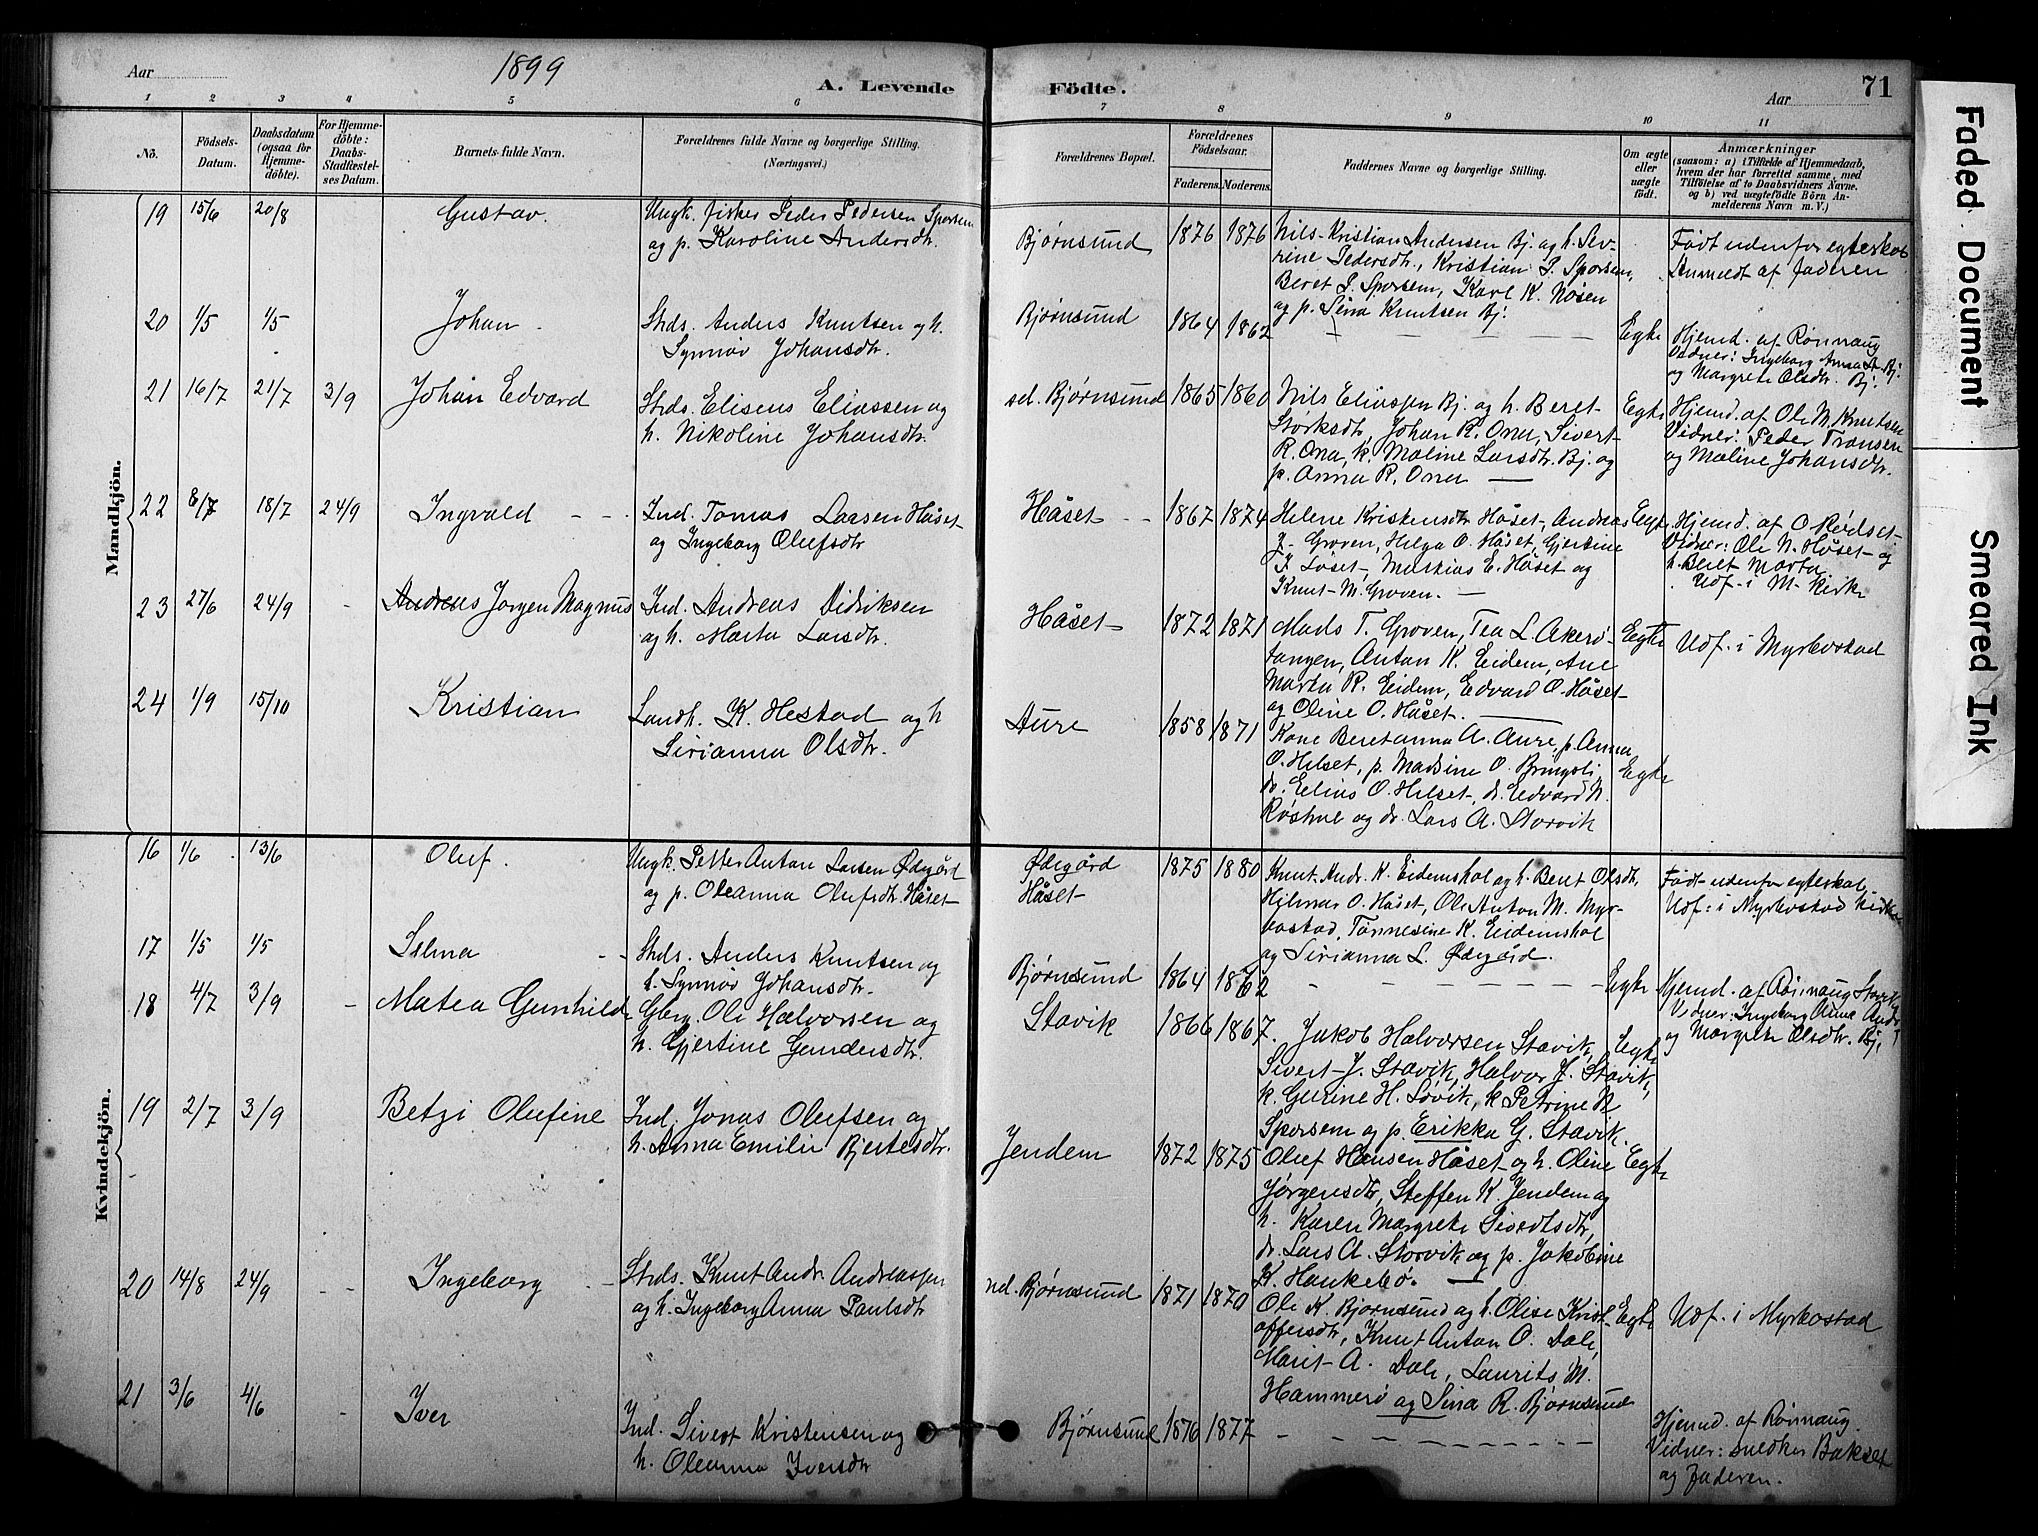 Aar 1899
A. Levende Födte.
Aar 71
1 2 3 4 5 6 7 8 9 10 11
No.
Födsels-Datum.
Daabsdatum (ogsaa for Hjemme-döbte).
For Hjemme-döbte: Daabs-Stadfæstel-ses Datum.
Barnets fulde Navn.
Forældrenes fulde Navne og borgerlige Stilling. (Næringsvei.)
Forældrenes Bopæl.
Forældrenes Födselsaar.
Faderens. Moderens.
Faddernes Navne og borgerlige Stilling.
Om ægte eller uægte födt.
Anmærkninger
(saasom: a) i Tilfælde af Hjemmedaab,
hvem der har forrettet samme, med
Tilföielse af to Daabsvidners Navne,
og b) ved uægtefödte Börn An-
melderens Navn m. V.)
Mandkjön.
19 15/6 20/8 Gustav. Ungk. fisker Peder Pedersen Sporsem
og p. Karoline Andersdtr.
Bjørnsund 1876 1876 Nils Kristian Andersen Bj. og h. Sev-
rine Pedersdtr, Kristian P. Sporsem,
Beret P. Sporsem, Karl K. Nøsen
og p. Sina Knutsen Bj.
Født udenfor egteskab
Anmeldt af Faderen
20 1/5 1/5 Johan. Strds. Anders Knutsen og h.
Synnøv Johansdtr.
Bjørnsund 1864 1862 Egte Hjemd. af Rønnaug
Vidner: Ingeborg Anna A. Bj.
og Margrete Olsdtr. Bj.
21 16/7 21/7 3/9 Johan Edvard Strds. Eliseus Eliassen og
h. Nikoline Johansdtr.
sd. Bjørnsund 1865 1860 Nils Eliassen Bj. og h. Beret
Størksdtr, Johan R. Ona, Sivert
R. Ona, k. Maline Larsdtr. Bj. og
p. Anna R. Ona
Egte Hjemd. af Ole N. Knutsen
Vidner: Peder Transen
og Maline Johansdtr.
22 8/7 18/7 24/9 Ingvald Ind. Tomas Larsen Håset
og Ingeborg Olufsdtr
Håset 1867 1874 Helene Kristensdtr Håset, Andreas
J. Groven, Helga O. Håset, Gjertine
I. Løset, Mathias E. Håset og
Knut M. Groven.
Egte Hjemd. af O Rødset
Vidner: Ole N. Håset og
h. Beret Marta
Udf. i M. kirke
23 27/6 24/9 Andreas Jørgen Magnus Ind. Andreas Didriksen
og h. Marta Larsdtr.
Håset 1872 1871 Mads T. Groven, Tea L. Akerø-
tangen, Anton K. Eidem, Ane
Marta R. Eidem, Edvard O. Håset
og Oline O. Håset.
Egte Udf. i Myrbostad
24 1/9 15/10 Kristian Landh. K. Hestad og h
Sirianna Olsdtr.
Aure 1858 1871 Kone Beretanna A. Aure, p. Anna
O. Helset, p. Madsine O. Bringsli
dr. Elius O. Helset, dr. Edvard N.
Røshne og dr. Lars A. Storvik
Egte
Kvindekjön.
16 1/6 13/6 Oluf. Ungk. Petter Anton Larsen Ødegård
og p. Oleanna Olufsdtr. Håset
Ødegård
Håset 1875 1880 Knut Andr. K. Eidemshol og h. Berit Olsdtr,
Hilmar O. Håset, Ole Anton M. Myr-
bostad, Tønnesine K. Eidemshol
og Sirianna L. Ødegård.
Født udenfor egteskab
Udf. i Myrbostad kirke
17 1/5 1/5 Selma Strds. Anders Knutsen og
h. Synnøv Johansdtr.
Bjørnsund 1864 1862 Egte Hjemd. af Rønnaug Stavik
Vidner: Ingeborg Anna Andr.
og Margrete Olsdtr. Bj.
18 4/7 3/9 Matea Gunhilde Gbrg. Ole Halvorsen og
h. Gjertine Gundersdtr.
Stavik 1866 1867. Jakob Halvorsen Stavik,
Sivert J. Stavik, Halvor J. Stavik,
k. Gurine H. Løvik, k Petrine N
Sporsem og p. Erikka G. Stavik.
Egte
19 2/7 3/9 Betzi Olufine Ind. Jonas Olufsen og
h. Anna Emilie Bjertesdtr.
Jendem 1872 1875 Oluf Hansen Håset og h. Oline
Jørgensdtr, Steffen K. Jendem og
h. Karen Margrete Sivertsdtr,
dr. Lars A. Storvik og p. Jakobine
K. Haukebø.
Egte
20 14/8 24/9 Ingeborg Strds. Knut Andr. Andreassen
og h. Ingeborg Anna Paulsdtr
nd. Bjørnsund 1871 1870 Ole K. Bjørnsund og h. Olise Krist-
offersdtr, Knut Anton O. Dale,
Marit A. Dale, Laurits M.
Hammerø og Sina R. Bjørnsund
Egte Udf. i Myrbostad
21 3/6 4/6 Iver Ind. Sivert Kristensen og
h. Oleanna Iversdtr
Bjørnsund 1876 1877 Hjemd. af Rønnaug
Vidner: snedker Bakset
og Faderen.
Faded Document
Smeared Ink